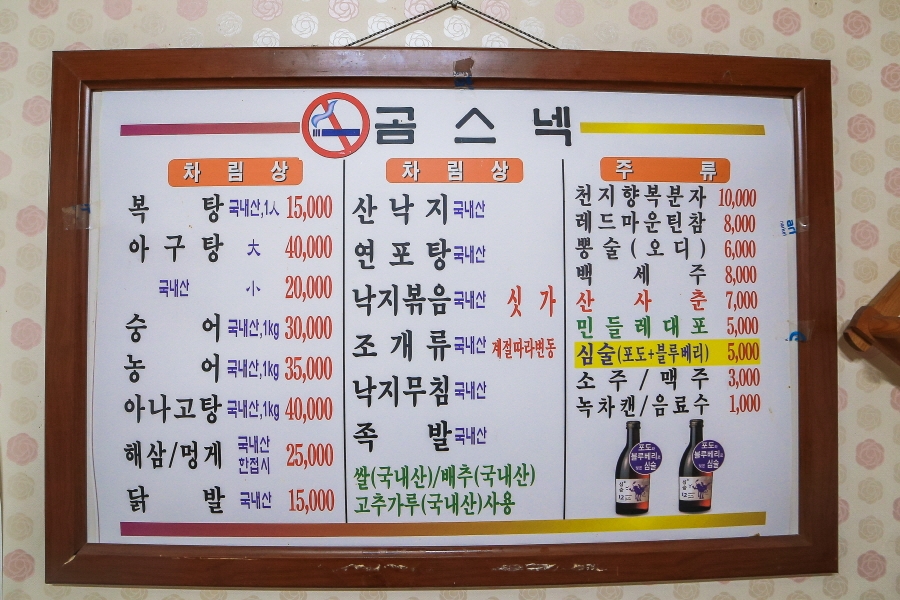 곰스넥
차림상
복탕 국내산,1人 15,000
아구탕 大 40,000
국내산 小 20,000
숭어 국내산,1kg 30,000
농어 국내산,1kg 35,000
아나고탕 국내산,1kg 40,000
해삼/멍게 국내산 한접시 25,000
닭발 국내산 15,000
차림상
산낙지 국내산
연포탕 국내산
낙지볶음 국내산 싯가
조개류 국내산 계절따라변동
낙지무침 국내산
족발 국내산
쌀(국내산)/배추(국내산)
고추가루(국내산)사용
주류
천지향복분자 10,000
레드마운틴참 8,000
뽕술(오디) 6,000
백세주 8,000
산사춘 7,000
민들레대포 5,000
심술(포도+블루베리) 5,000
소주/맥주 3,000
녹차캔/음료수 1,000
포도와
블루베리로
심술
포도와
블루베리로
심술